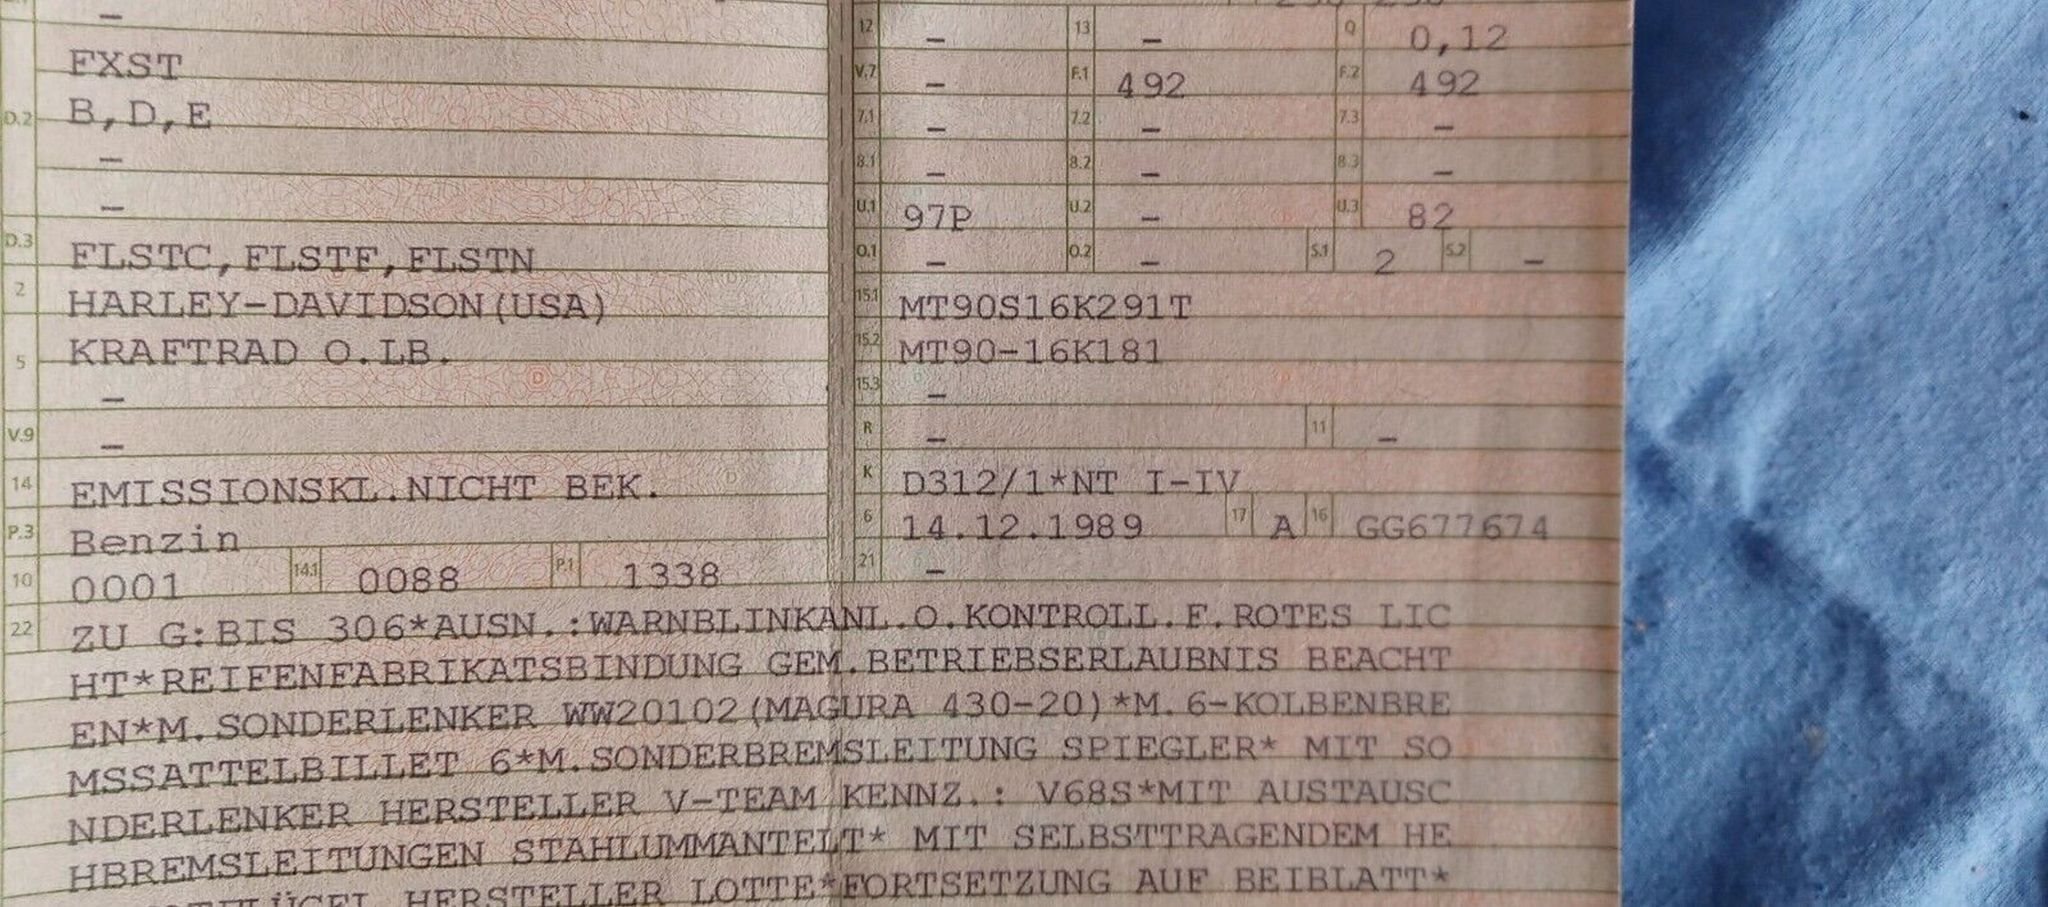 –
FXST
D.2 B,D,E
–
–
D.3 FLSTC,FLSTF,FLSTN
2 HARLEY-DAVIDSON(USA)
5 KRAFTRAD O.LB.
–
V.9 –
14 EMISSIONSKL.NICHT BEK.
P.3 Benzin
10 0001 14.1 0088 P.1 1338
12 – 13 – Q 0,12
V.7 – F.1 492 F.2 492
7.1 – 7.2 – 7.3 –
8.1 – 8.2 – 8.3 –
U.1 97P U.2 – U.3 82
O.1 – O.2 – S.1 2 S.2 –
15.1 MT90S16K291T
15.2 MT90-16K181
15.3 –
R – 11 –
K D312/1*NT I-IV
6 14.12.1989 17 A 16 GG677674
21 –
22 ZU G:BIS 306*AUSN.:WARNBLINKANL.O.KONTROLL.F.ROTES LIC
HT*REIFENFABRIKATSBINDUNG GEM.BETRIEBSERLAUBNIS BEACHT
EN*M.SONDERLENKER WW20102(MAGURA 430-20)*M.6-KOLBENBRE
MSSATTELBILLET 6*M.SONDERBREMSLEITUNG SPIEGLER* MIT SO
NDERLENKER HERSTELLER V-TEAM KENNZ.: V68S*MIT AUSTAUSC
HBREMSLEITUNGEN STAHLUMMANTELT* MIT SELBSTTRAGENDEM HE
HERSTELLER LOTTE*FORTSETZUNG AUF BEIBLATT*